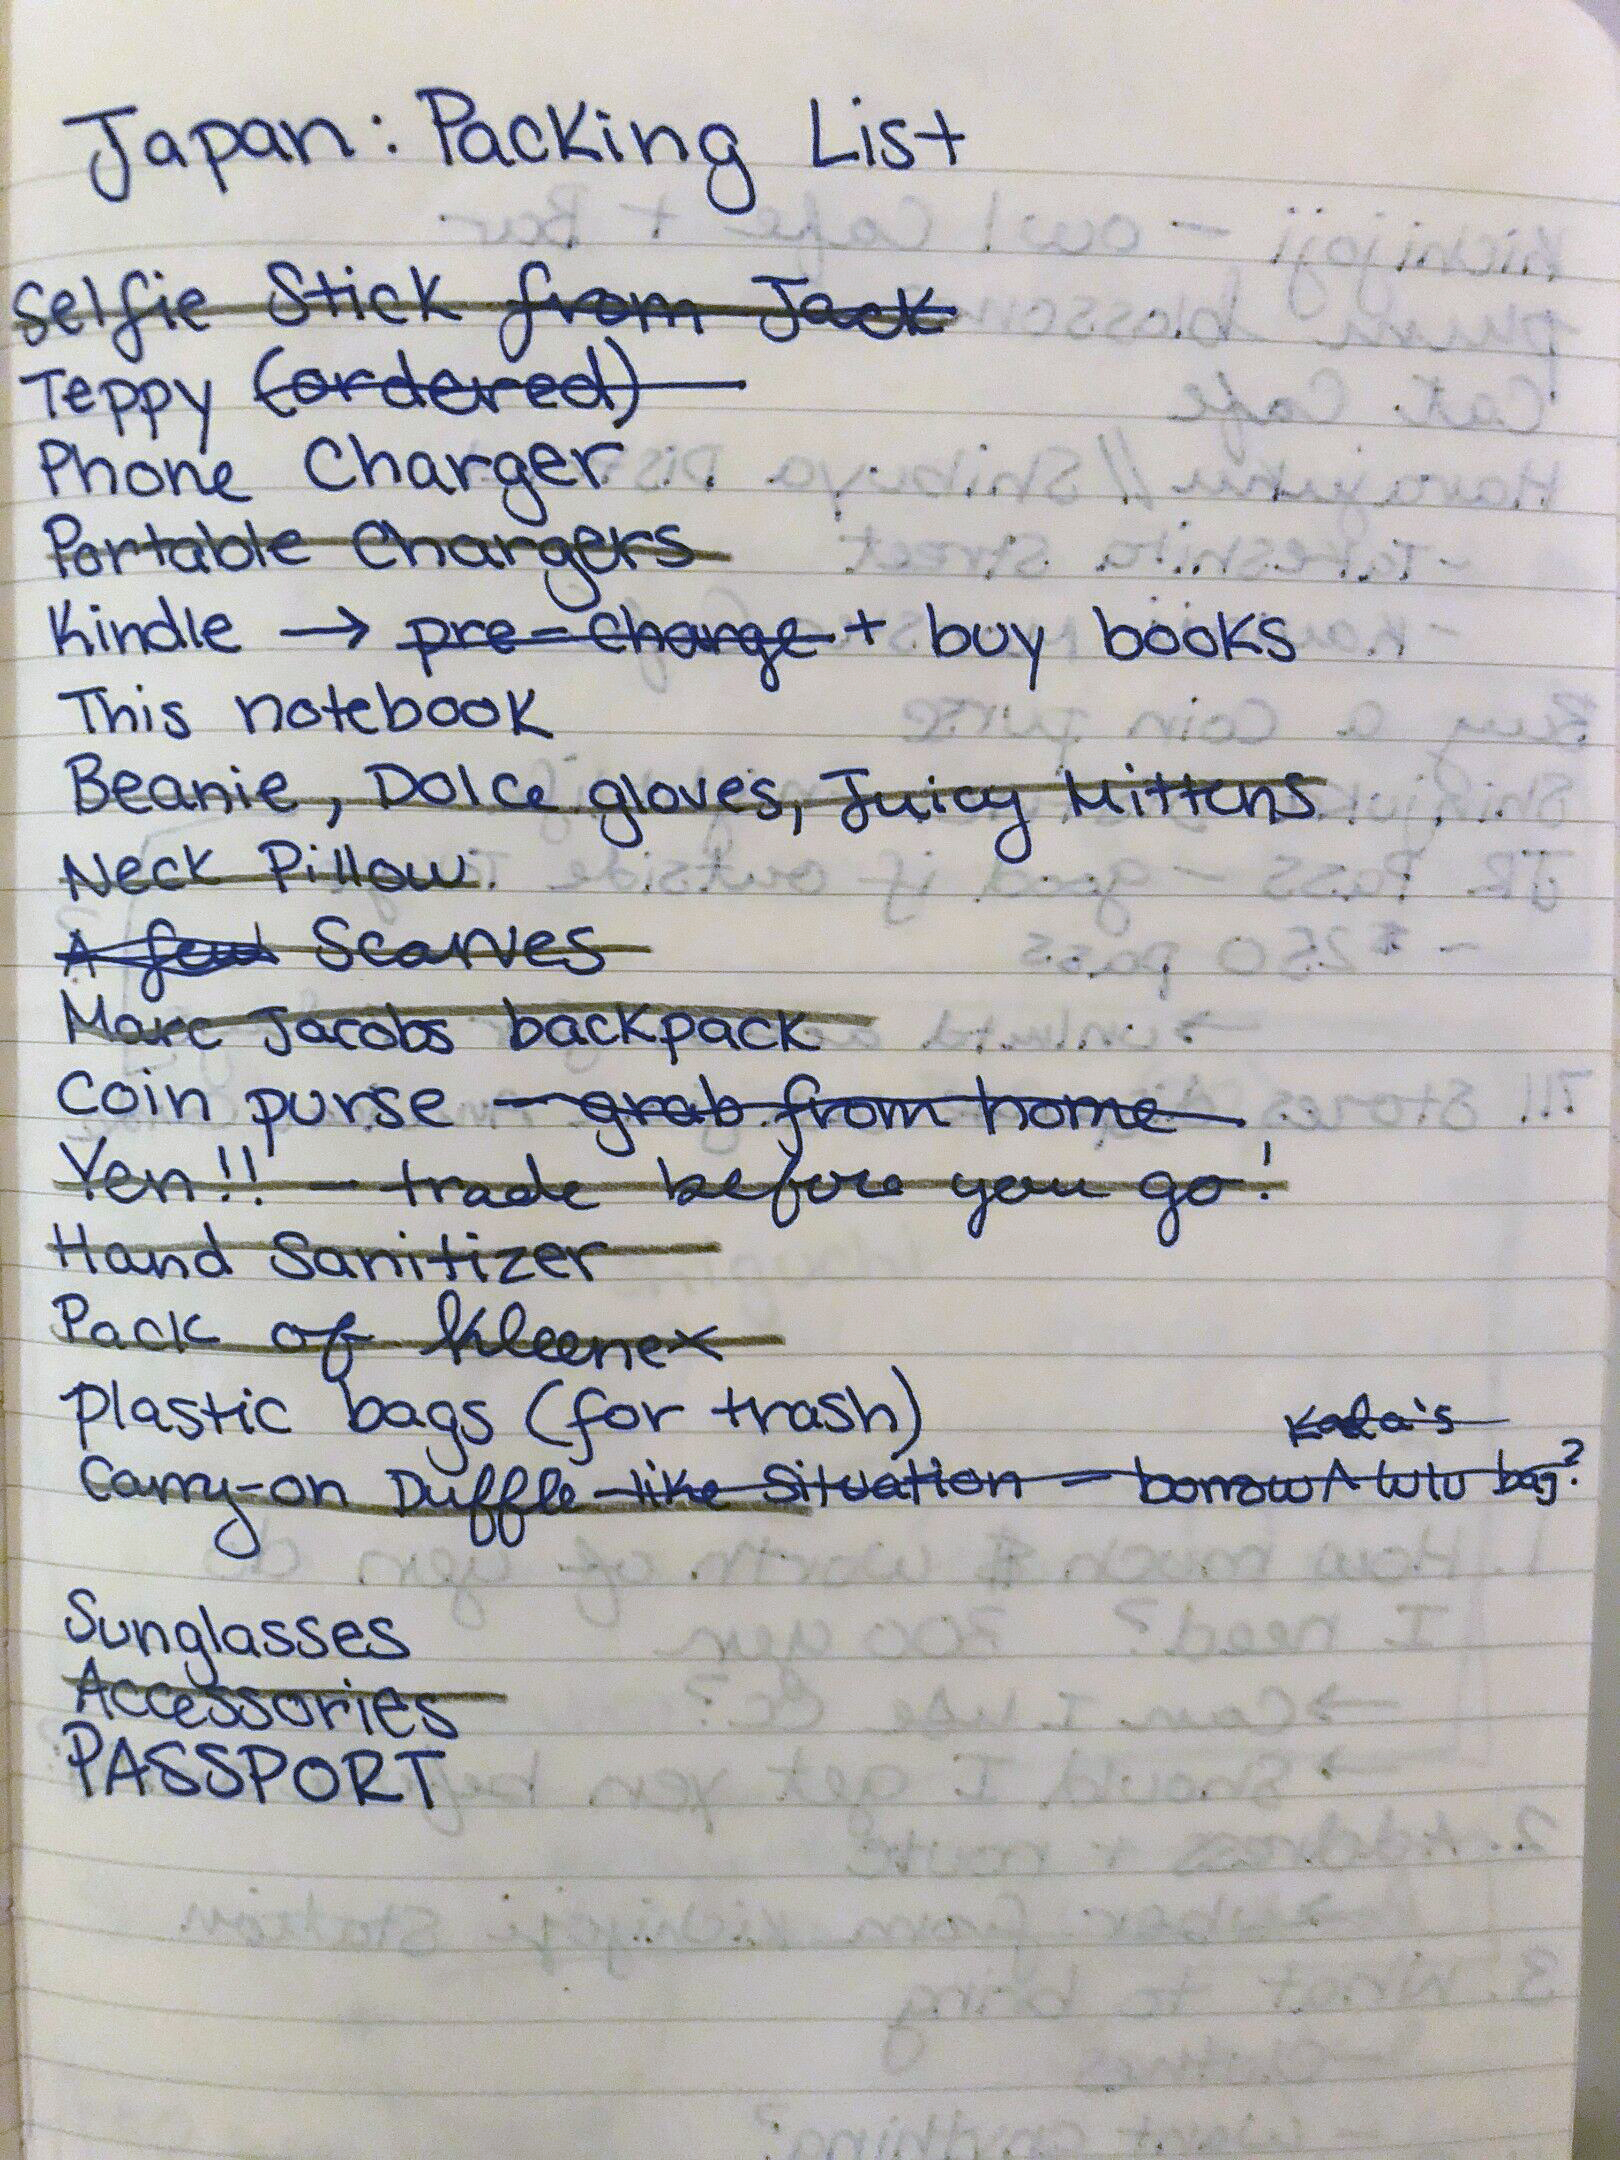 Japan: Packing List
Selfie Stick from Jack
Teppy (ordered)
Phone Charger
Portable Chargers
Kindle → pre-charge + buy books
This notebook
Beanie, Dolce gloves, Juicy Mittens
Neck Pillow
A few Scarves
Marc Jacobs backpack
Coin purse - grab from home
Yen!! - trade before you go!
Hand Sanitizer
Pack of Kleenex
Plastic bags (for trash)
Kala's
Carry-on Duffle-like Situation - borrow ^ lulu bag?
Sunglasses
Accessories
PASSPORT